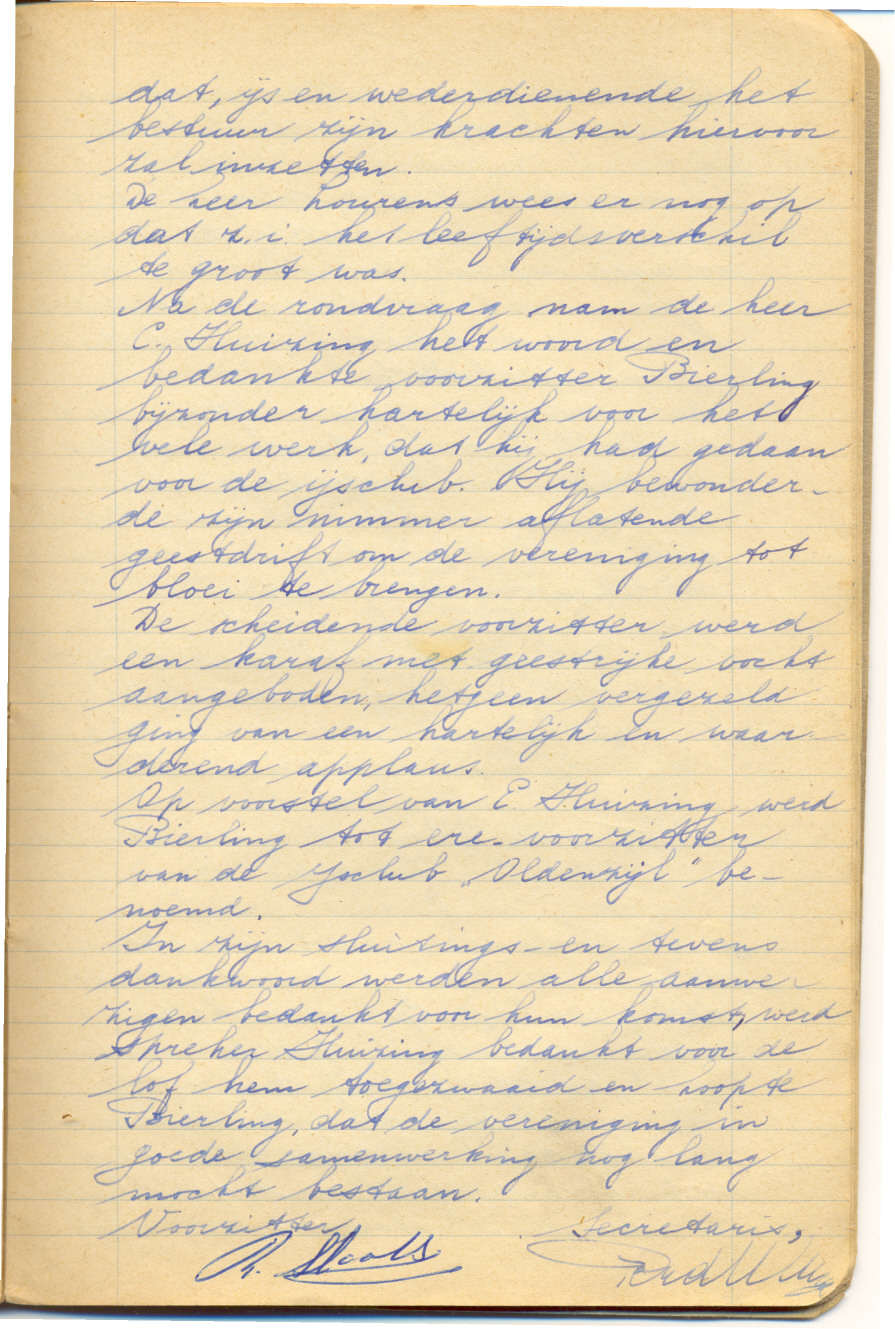 dat, ijs en wederdienende het
bestuur zijn krachten hiervoor
zal inzetten.
De heer Lourens wees er nog op
dat z.i. het leeftijdsverschil
te groot was.
Na de rondvraag nam de heer
C. Huizing het woord en
bedankte voorzitter Bierling
bijzonder hartelijk voor het
vele werk, dat hij had gedaan
voor de ijsclub. Hij bewonder-
de zijn nimmer aflatende
geestdrift om de vereniging tot
bloei te brengen.
De scheidende voorzitter werd
een karaf met geestrijke vocht
aangeboden, hetgeen vergezeld
ging van een hartelijk en waar-
derend applaus.
Op voorstel van E. Huizing werd
Bierling tot ere-voorzitter
van de Ysclub „Oldenzijl" be-
noemd.
In zijn sluitings- en tevens
dankwoord werden alle aanwe-
zigen bedankt voor hun komst, werd
spreker Huizing bedankt voor de
lof hem toegezwaaid en hoopte
Bierling, dat de vereniging in
goede samenwerking nog lang
mocht bestaan.
Voorzitter Secretaris,